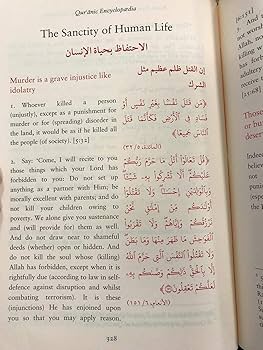 Qur'ānic Encyclopædia
The Sanctity of Human Life
الاحتفاظ بحياة الإنسان
Murder is a grave injustice like
idolatry
1. Whoever killed a person
(unjustly), except as a punishment for
murder or for (spreading) disorder in
the land, it would be as if he killed all
the people (of society). [5:32]
2. Say: 'Come, I will recite to you
those things which your Lord has
forbidden to you: Do not set up
anything as a partner with Him; be
morally excellent with parents; and do
not kill your children owing to
poverty. We alone give you sustenance
and (will provide for) them as well.
And do not draw near to shameful
deeds (whether) open or hidden. And
do not kill the soul whose (killing)
Allah has forbidden, except when it is
rightfully due (according to law in self-
defence against disruption and whilst
combating terrorism). It is these
(injunctions) He has enjoined upon
you so that you may apply reason.
إن القتل ظلم عظيم مثل
الشرك
﴿مَن قَتَلَ نَفْسًا بِغَيْرِ نَفْسٍ أَوْ
فَسَادٍ فِي الْأَرْضِ فَكَأَنَّمَا قَتَلَ
النَّاسَ جَمِيعًا﴾
(المائدة، ٥/ ٣٢)
﴿قُلْ تَعَالَوْا أَتْلُ مَا حَرَّمَ رَبُّكُمْ
عَلَيْكُمْ أَلَّا تُشْرِكُوا بِهِ شَيْئًا
وَبِالْوَالِدَيْنِ إِحْسَانًا وَلَا تَقْتُلُوا
أَوْلَادَكُم مِّنْ إِمْلَاقٍ نَّحْنُ
نَرْزُقُكُمْ وَإِيَّاهُمْ وَلَا تَقْرَبُوا
الْفَوَاحِشَ مَا ظَهَرَ مِنْهَا وَمَا بَطَنَ
وَلَا تَقْتُلُوا النَّفْسَ الَّتِي حَرَّمَ اللَّهُ
إِلَّا بِالْحَقِّ ذَلِكُمْ وَصَّاكُم بِهِ
لَعَلَّكُمْ تَعْقِلُونَ﴾
(الأنعام، ٦/ ١٥١)
328